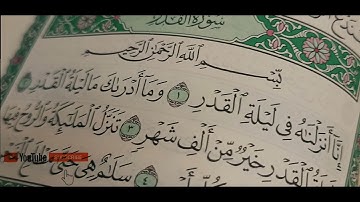 سُورَةُ القَدْرِ
بِسْمِ اللَّهِ الرَّحْمَٰنِ الرَّحِيمِ
إِنَّا أَنزَلْنَاهُ فِي لَيْلَةِ الْقَدْرِ ١ وَمَا أَدْرَاكَ مَا لَيْلَةُ الْقَدْرِ
الْقَدْرِ خَيْرٌ مِّنْ أَلْفِ شَهْرٍ ٣ تَنَزَّلُ الْمَلَائِكَةُ وَالرُّوحُ فِيهَا
٤ سَلَامٌ هِيَ حَتَّىٰ
YouTube